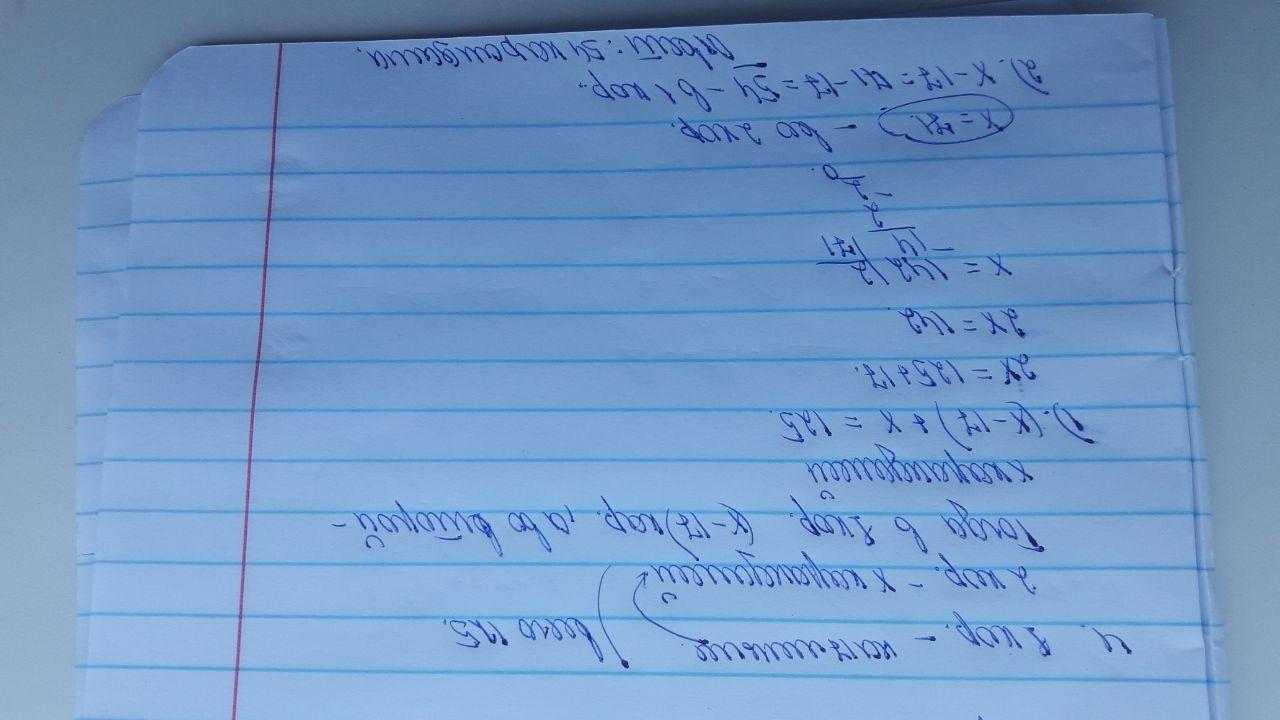 4. 1 кор. - на 17 меньше } всего 125.
2 кор. - x карандашей
Тогда в 1 кор. (x-17) кор., а во второй -
x карандашей
1). (x-17)+x = 125.
2x = 125+17.
2x = 142.
x = 142 | 2
-14 | 71
2
-2
0.
x = 71. - во 2 кор.
2). x-17 = 71-17 = 54 - в 1 кор.
Ответ: 54 карандаша.